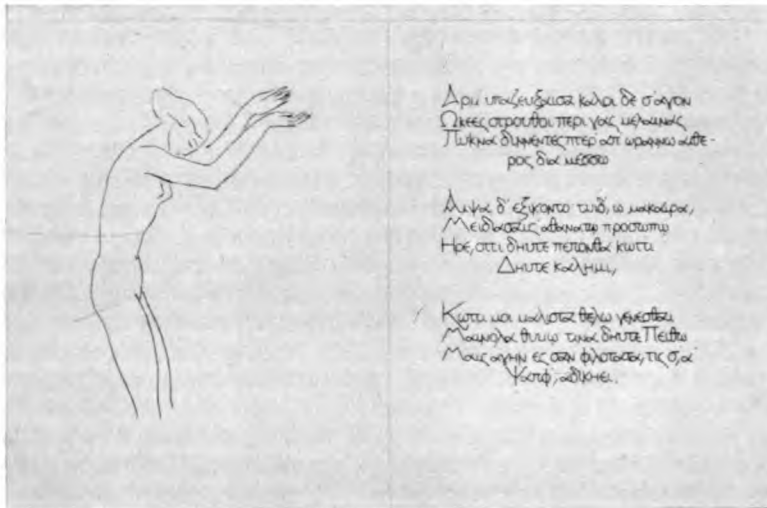 Αρμ υπαζευξαισα καλοι δε σ'αγον
Ωκεες στρουθοι περι γας μελαινας
Πυκνα διννεντες πτερ' απ' ωραννω αιθε-
ρος δια μεσσω
Αιψα δ' εξικοντο· τυδ, ω μακαιρα,
Μειδασαις αθανατω προσωπω
Ηρε, οττι δηυτε πεπονθα κωττι
Δηυτε καλημι,
Κωττι μοι μαλιστα θελω γενεσθαι
Μαινολα θυμω τινα δηυτε Πειθω
Μαις αγην ες σαν φιλοτατα, τις σ, α'
Ψαπφ', αδικηει.